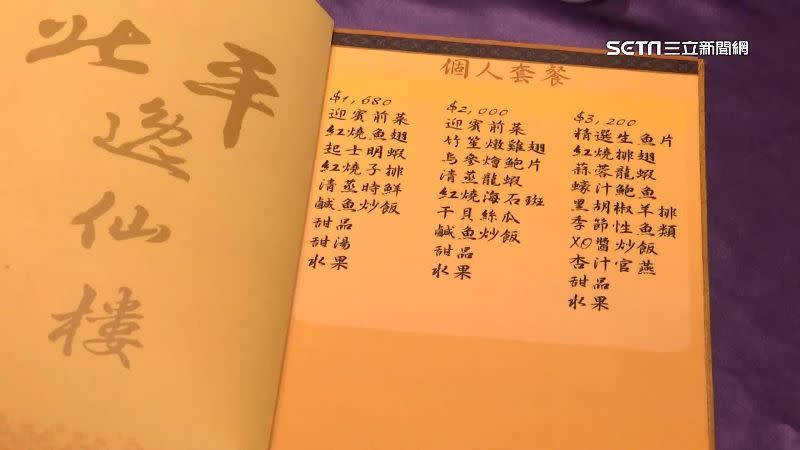 SETN三立新聞網
手
此
逸
仙
樓
個人套餐
$1,680
迎賓前菜
紅燒魚翅
起士明蝦
紅燒子排
清蒸時鮮
鹹魚炒飯
甜品
甜湯
水果
$2,000
迎賓前菜
竹笙燉雞翅
烏參燴鮑片
清蒸龍蝦
紅燒海石斑
干貝絲瓜
鹹魚炒飯
甜品
水果
$3,200
精選生魚片
紅燒排翅
蒜蓉龍蝦
蠔汁鮑魚
黑胡椒羊排
季節性魚類
XO醬炒飯
杏汁官燕
甜品
水果